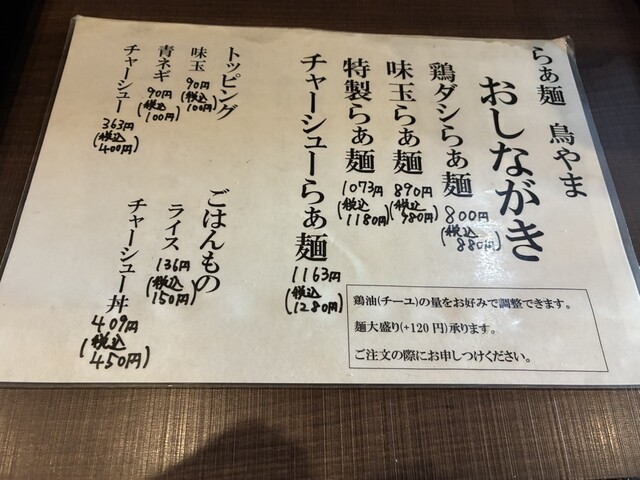 らぁ麺 鳥やま
おしながき
鶏ダシらぁ麺 800円(税込880円)
味玉らぁ麺 890円(税込980円)
特製らぁ麺 1073円(税込1180円)
チャーシューらぁ麺 1163円(税込1280円)
トッピング
味玉 90円(税込100円)
青ネギ 90円(税込100円)
チャーシュー 363円(税込400円)
ごはんもの
ライス 136円(税込150円)
チャーシュー丼 409円(税込450円)
鶏油(チーユ)の量をお好みで調整できます。
麺大盛り(+120円)承ります。
ご注文の際にお申しつけください。